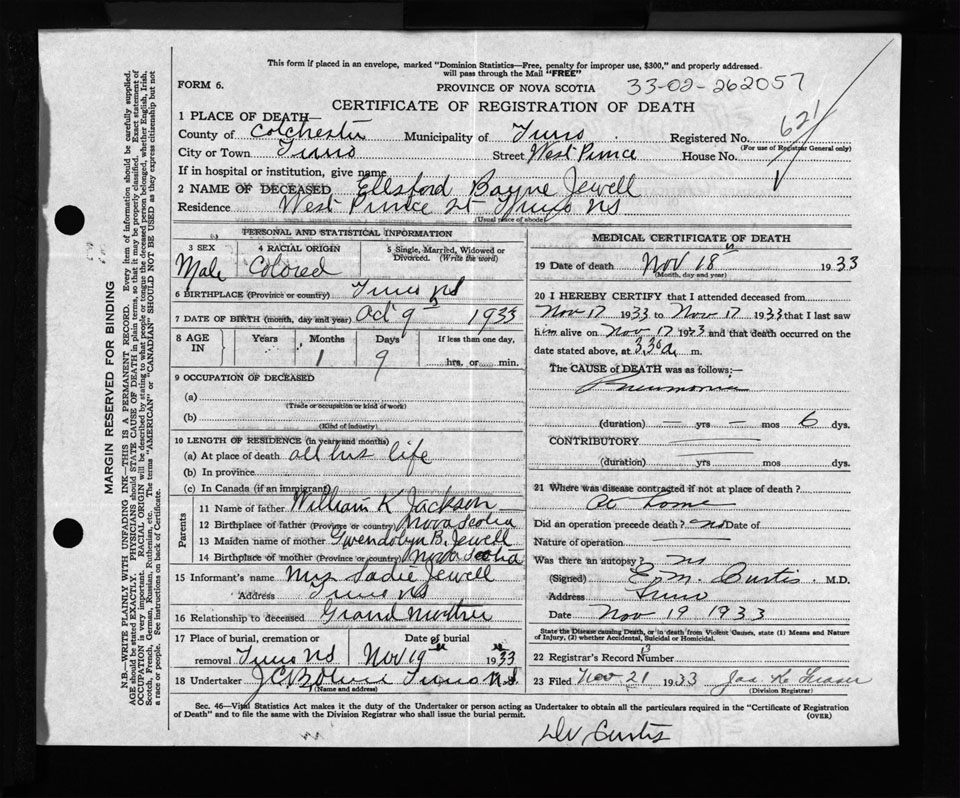 This form if placed in an envelope, marked "Dominion Statistics—Free, penalty for improper use, $300," and properly addressed
will pass through the Mail "FREE"
FORM 6.
PROVINCE OF NOVA SCOTIA
33-02-262057
CERTIFICATE OF REGISTRATION OF DEATH
621
1 PLACE OF DEATH—
County of Colchester Municipality of Truro Registered No.
(For use of Registrar General only)
City or Town Truro Street West Prince House No.
If in hospital or institution, give name
2 NAME OF DECEASED Ellsford Bayne Jewell
Residence West Prince St Truro NS
(Usual place of abode)
PERSONAL AND STATISTICAL INFORMATION
3 SEX 4 RACIAL ORIGIN 5 Single, Married, Widowed or Divorced. (Write the word)
Male Colored
6 BIRTHPLACE (Province or country) Truro NS
7 DATE OF BIRTH (month, day and year) Oct 9th 1933
8 AGE IN Years Months Days If less than one day,
1 9 hrs. or min.
9 OCCUPATION OF DECEASED
(a)
(Trade or occupation or kind of work)
(b)
(Kind of industry)
10 LENGTH OF RESIDENCE (in years and months)
(a) At place of death all his life
(b) In province
(c) In Canada (if an immigrant)
Parents
11 Name of father William K Jackson
12 Birthplace of father (Province or country) Nova Scotia
13 Maiden name of mother Gwendolyn B. Jewell
14 Birthplace of mother (Province or country) Nova Scotia
15 Informant's name Mrs Sadie Jewell
Address Truro NS
16 Relationship to deceased Grand mother
17 Place of burial, cremation or Date of burial
removal Truro NS Nov 19 1933
18 Undertaker Truro N.S.
(Name and address)
MEDICAL CERTIFICATE OF DEATH
19 Date of death Nov 18 1933
(Month, day and year)
20 I HEREBY CERTIFY that I attended deceased from
Nov 17 1933 to Nov 17 1933 that I last saw
him alive on Nov 17 1933 and that death occurred on
date stated above, at 3.30 a m.
The CAUSE of DEATH was as follows:—
Pneumonia
(duration) — yrs — mos 6 dys.
CONTRIBUTORY
(duration) yrs mos dys.
21 Where was disease contracted if not at place of death?
At home
Did an operation precede death? no Date of
Nature of operation
Was there an autopsy? no
(Signed) E. M. Curtis M.D.
Address Truro
Date Nov 19 1933
State the Disease causing Death, or in death from Violent Causes, state (1) Means and Nature
of Injury, (2) whether Accidental, Suicidal or Homicidal.
22 Registrar's Record Number
23 Filed Nov 21 1933 Jas K Fraser
(Division Registrar)
Sec. 46—Vital Statistics Act makes it the duty of the Undertaker or person acting as Undertaker to obtain all the particulars required in the "Certificate of Registration
of Death" and to file the same with the Division Registrar who shall issue the burial permit.
(OVER)
Dr. Curtis
MARGIN RESERVED FOR BINDING
N.B.—WRITE PLAINLY WITH UNFADING INK—THIS IS A PERMANENT RECORD. Every item of information should be carefully supplied.
AGE should be stated EXACTLY. PHYSICIANS should STATE CAUSE OF DEATH in plain terms, so that it may be properly classified. Exact statement of
OCCUPATION is very important. RACIAL ORIGIN will be described by stating to what people or tongue the deceased person belonged, whether English, Irish,
Scotch, French, German, Russian, Ruthenian, etc. The terms "AMERICAN" or "CANADIAN" SHOULD NOT BE USED as they express citizenship but not
a race or people. See instructions on back of Certificate.